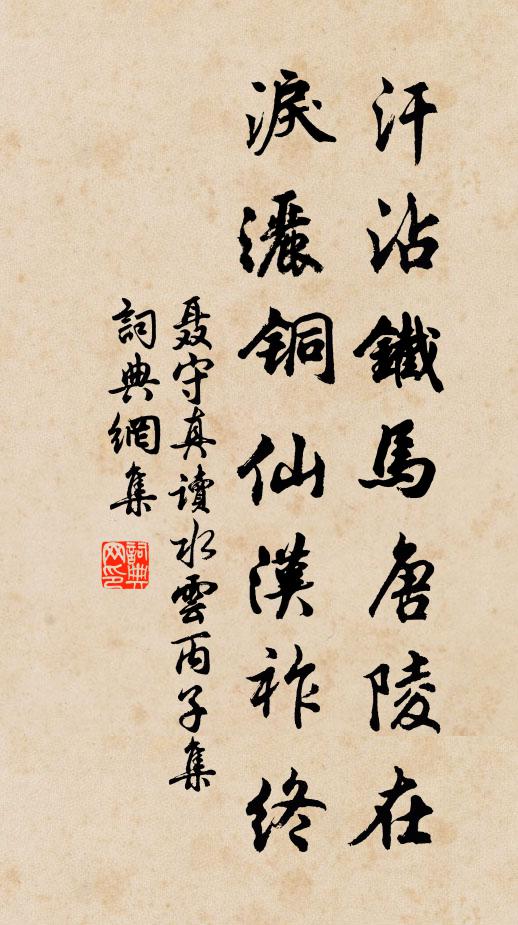 汗沾鐵馬唐陵在
淚灑銅仙漢祚終
聂守真讀水雲丙子集
詞典網集
詞典
网印